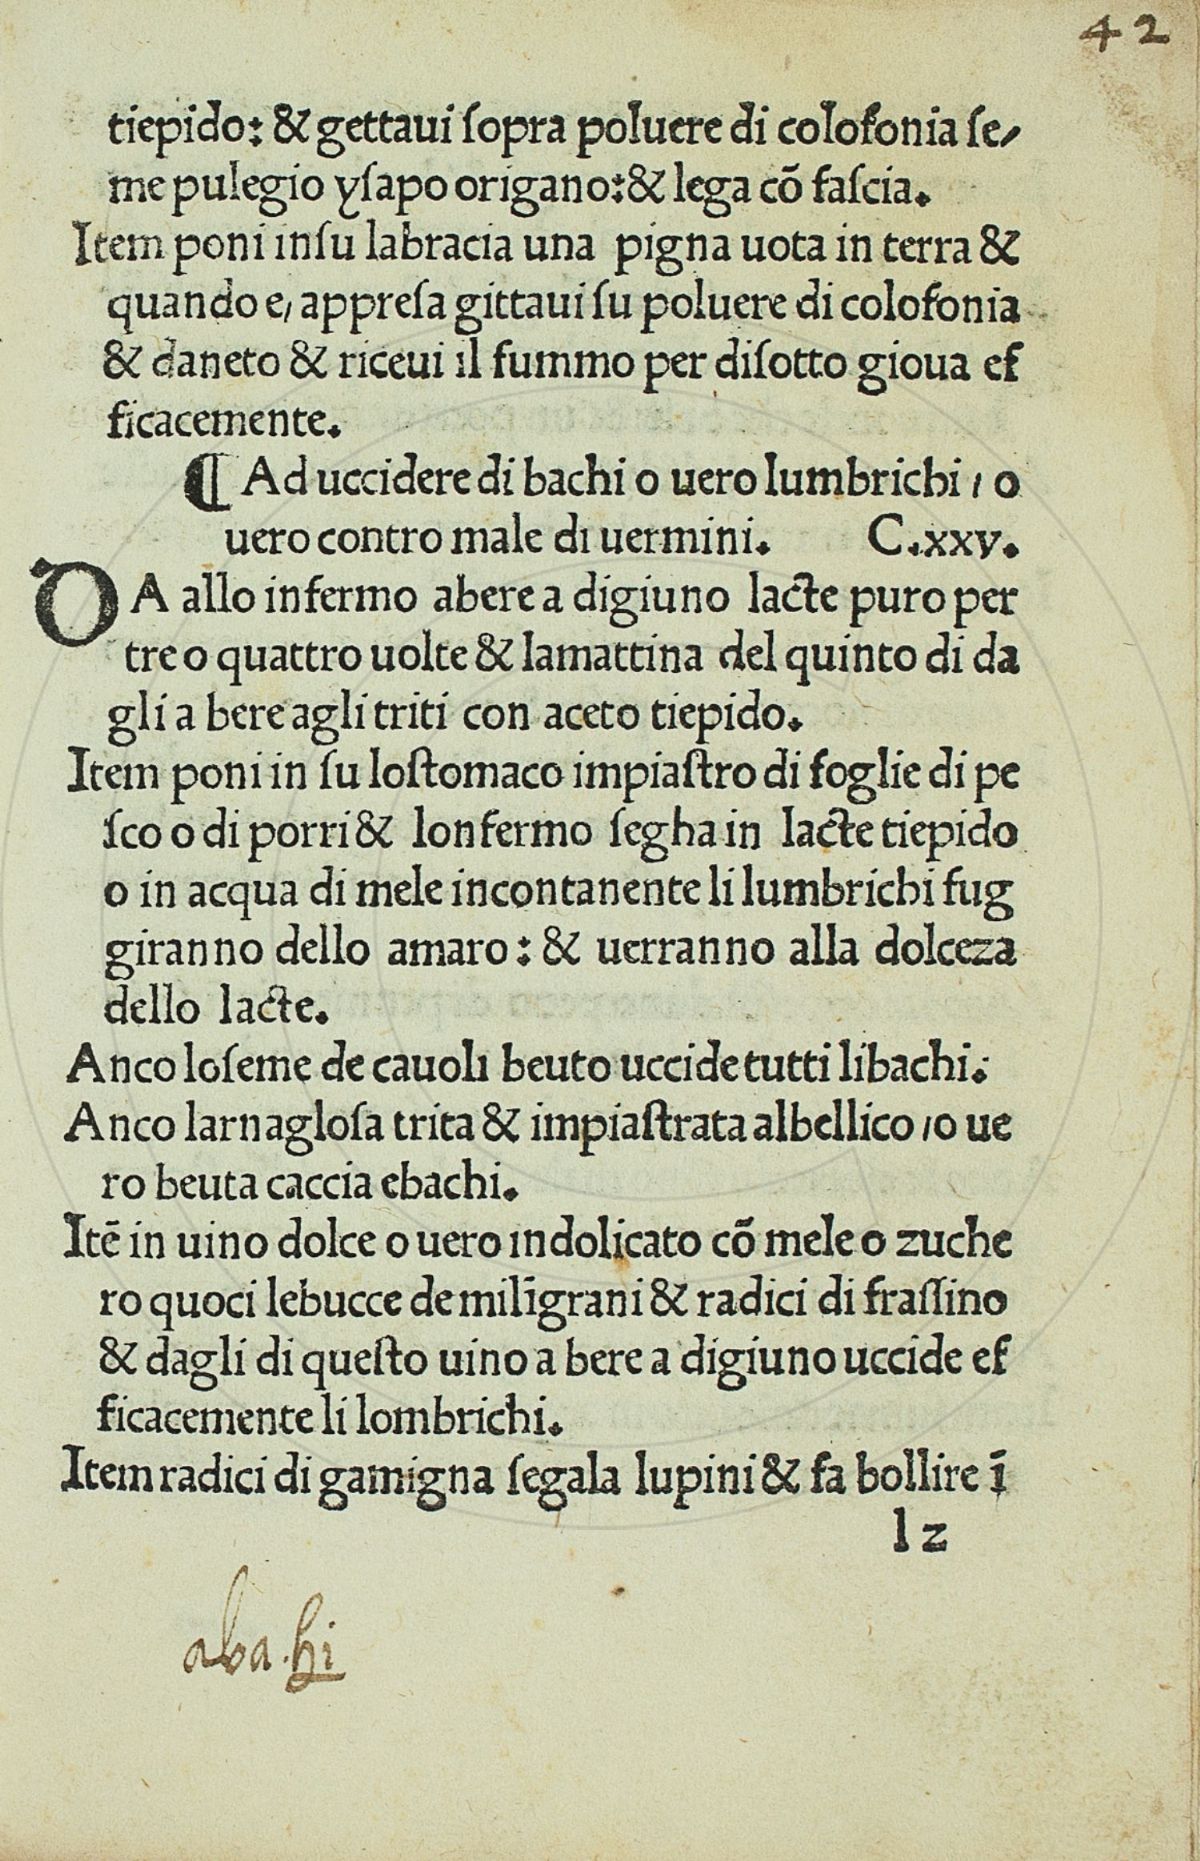 42
tiepido: & gettaui ſopra poluere di colofonia ſe/
me pulegio yſapo origano:& lega cõ faſcia.
Item poni inſu labracia una pigna uota in terra &
quando e, appreſa gittaui ſu poluere di colofonia
& daneto & riceui il fummo per diſotto gioua ef
ficacemente.
¶ Ad uccidere di bachi o uero lumbrichi / o
uero contro male di uermini. C.xxv.
DA allo infermo abere a digiuno lacte puro per
tre o quattro uolte & lamattina del quinto di da
gli a bere agli triti con aceto tiepido.
Item poni in ſu loſtomaco impiaſtro di foglie di pe
ſco o di porri & lonfermo ſegha in lacte tiepido
o in acqua di mele incontanente li lumbrichi fug
giranno dello amaro: & uerranno alla dolceza
dello lacte.
Anco loſeme de cauoli beuto uccide tutti libachi.
Anco larnagloſa trita & impiaſtrata albellico /o ue
ro beuta caccia ebachi.
Itẽ in uino dolce o uero indolicato cõ mele o zuche
ro quoci lebucce de milīgrani & radici di fraſſino
& dagli di queſto uino a bere a digiuno uccide ef
ficacemente li lombrichi.
Item radici di gamigna ſegala lupini & fa bollire ī
l z
aba.hi